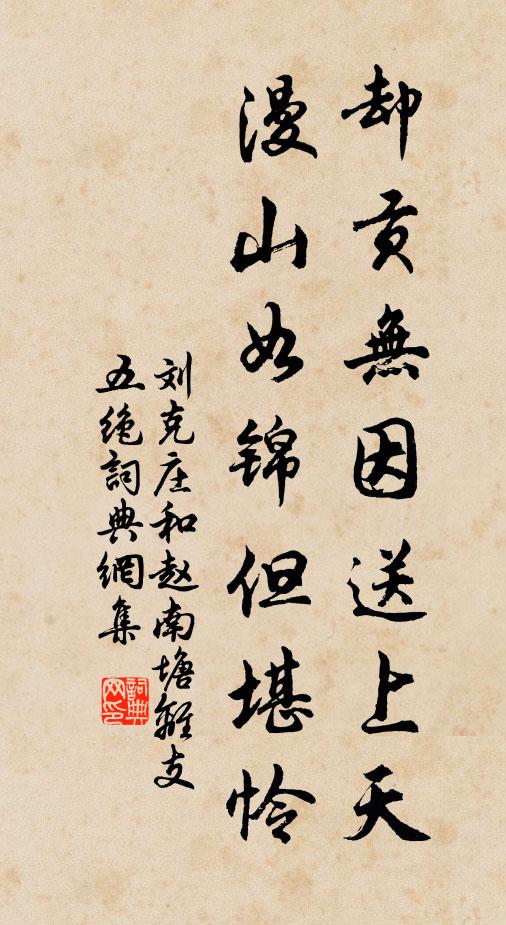 却貢無因送上天
漫山如锦但堪怜
刘克庄和赵南塘離支
五絶詞典網集
詞典網印